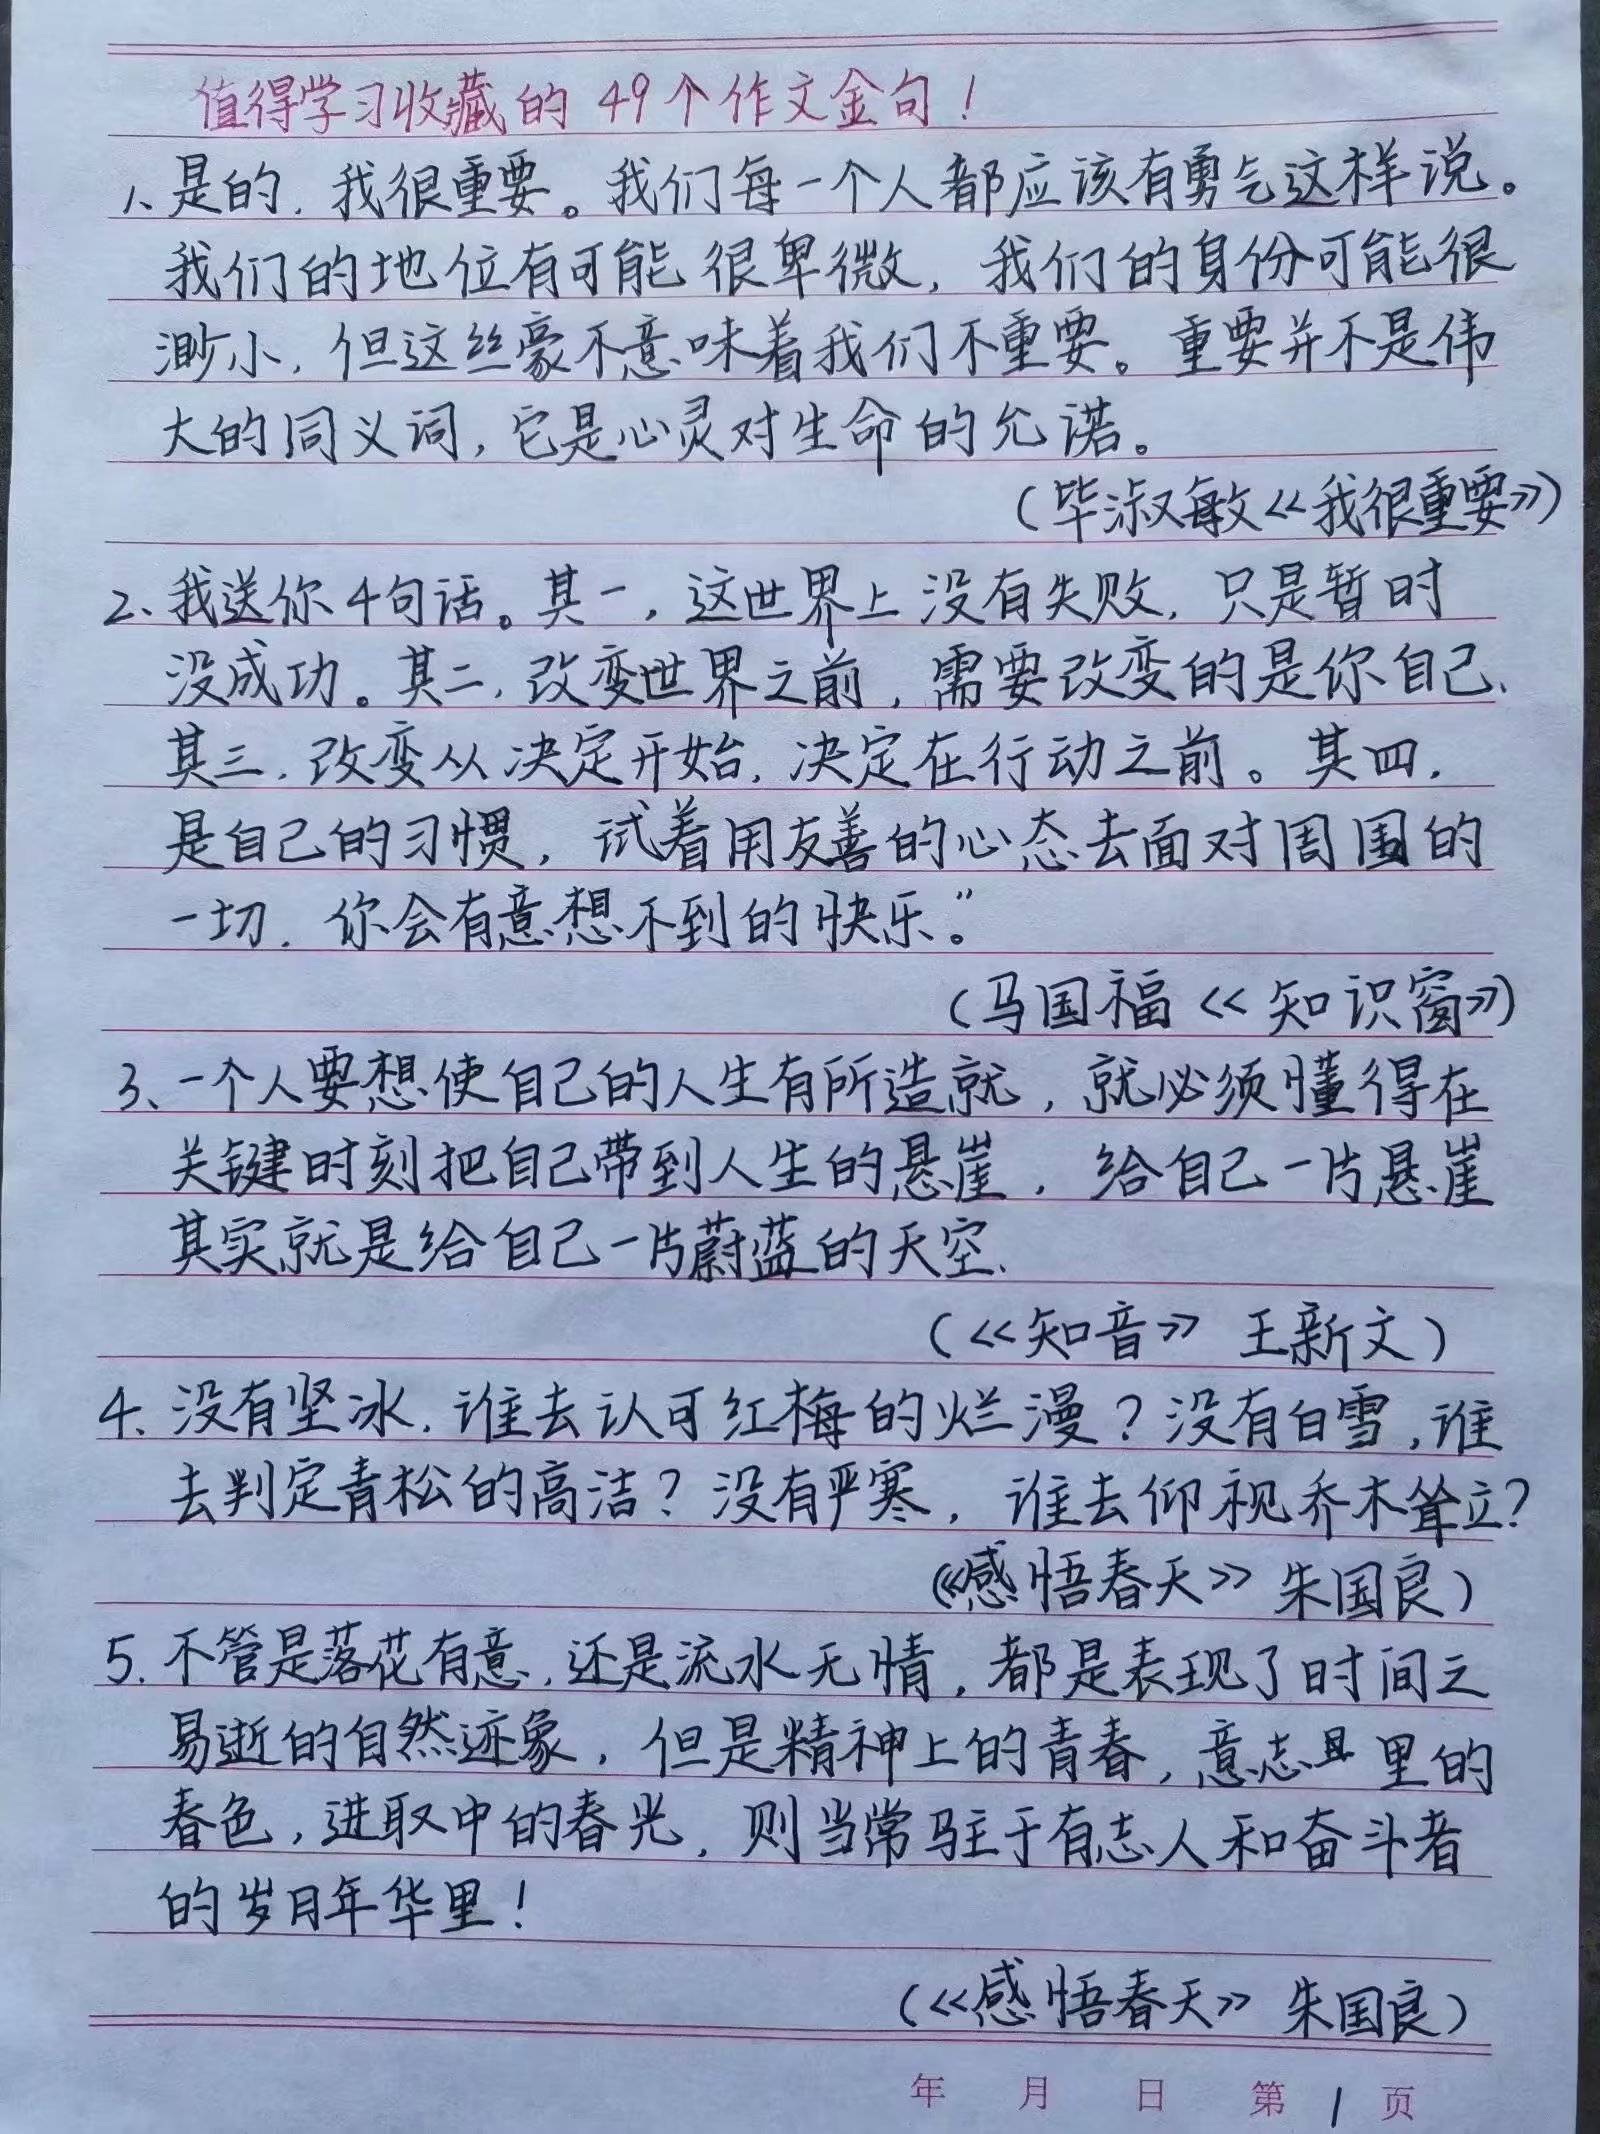 值得学习收藏的49个作文金句！
1、是的，我很重要。我们每一个人都应该有勇气这样说。
我们的地位有可能很卑微，我们的身份可能很
渺小，但这丝豪不意味着我们不重要。重要并不是伟
大的同义词，它是心灵对生命的允诺。
（毕淑敏《我很重要》）
2、我送你4句话。其一，这世界上没有失败，只是暂时
没成功。其二，改变世界之前，需要改变的是你自己.
其三，改变从决定开始，决定在行动之前。其四，
是自己的习惯，试着用友善的心态去面对周围的
一切，你会有意想不到的快乐。”
（马国福《知识窗》）
3、一个人要想使自己的人生有所造就，就必须懂得在
关键时刻把自己带到人生的悬崖，给自己一片悬崖
其实就是给自己一片蔚蓝的天空.
（《知音》 王新文）
4、没有坚冰，谁去认可红梅的烂漫？没有白雪，谁
去判定青松的高洁？没有严寒，谁去仰视乔木耸立？
（《感悟春天》 朱国良）
5.不管是落花有意，还是流水无情，都是表现了时间之
易逝的自然迹象，但是精神上的青春，意志里的
春色，进取中的春光，则当常驻于有志人和奋斗者
的岁月年华里！
（《感悟春天》 朱国良）
年 月 日 第1页